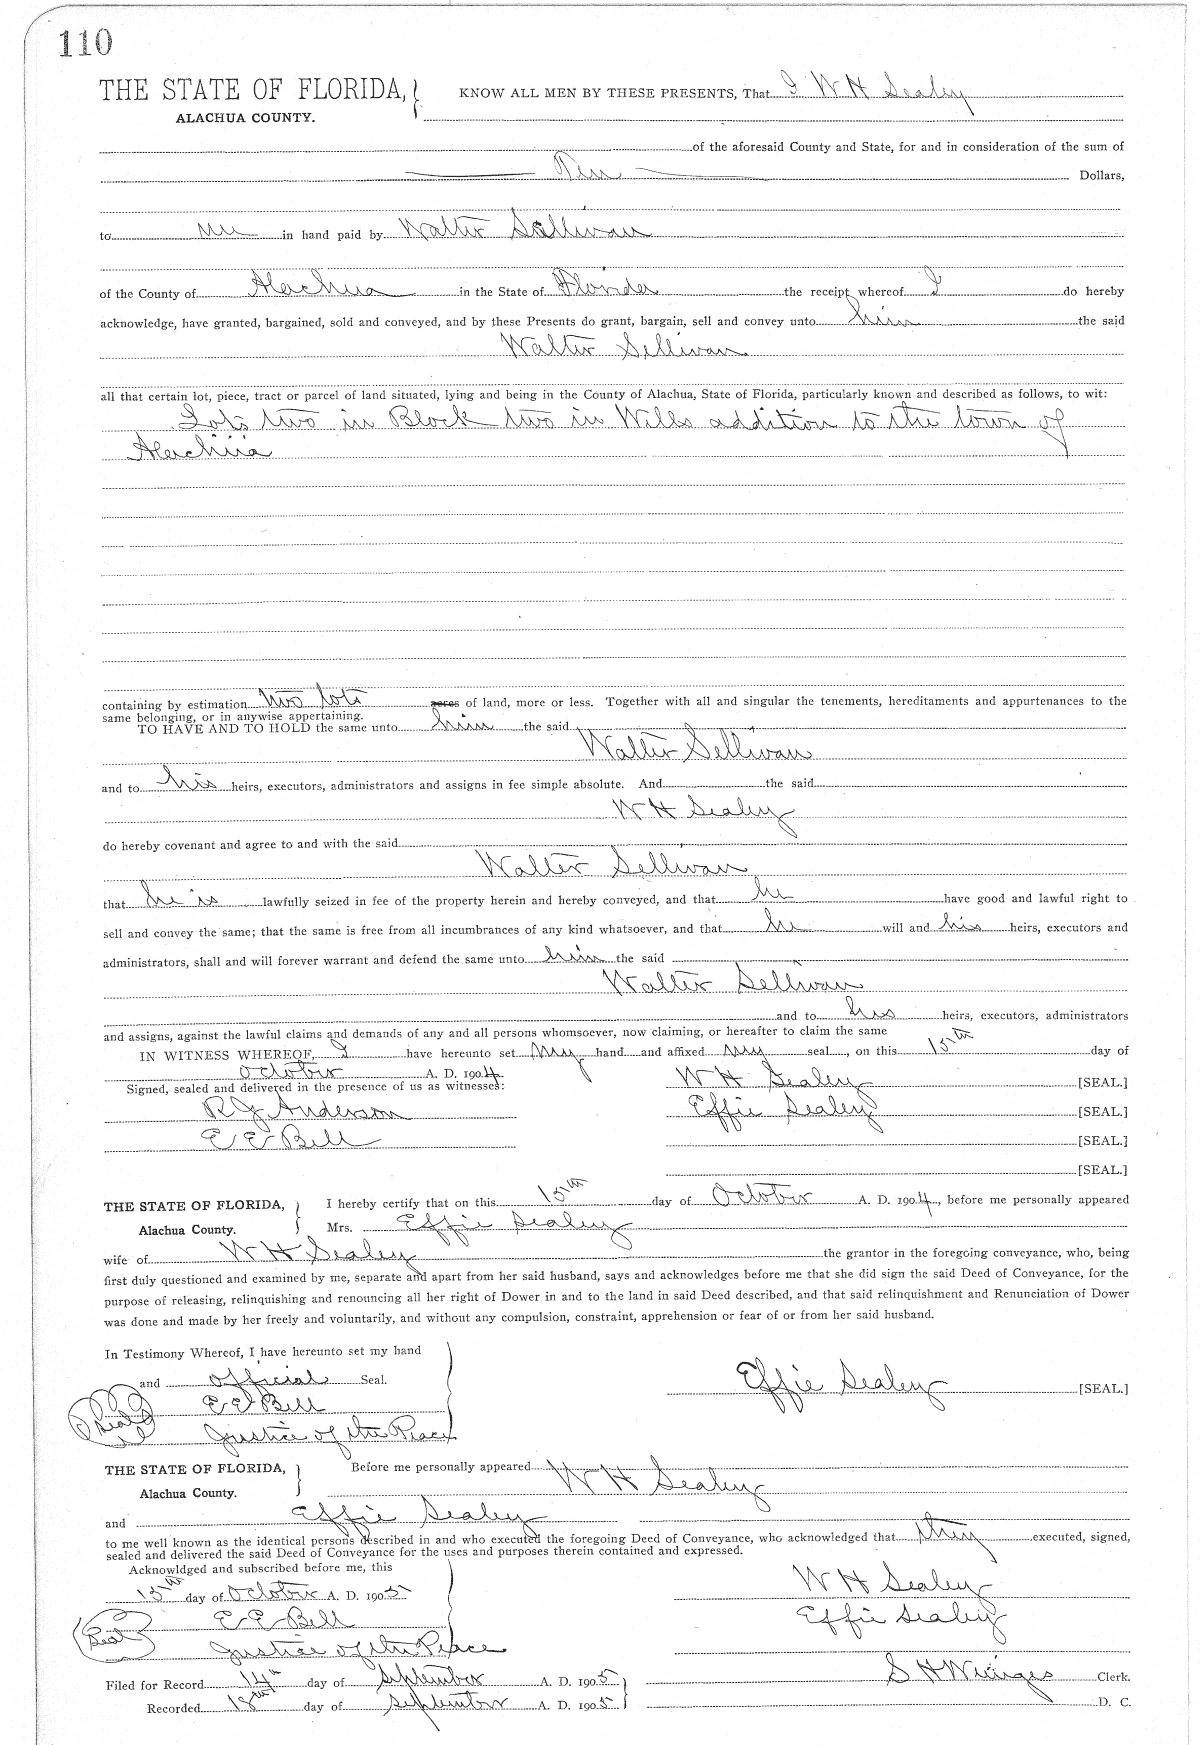 110
THE STATE OF FLORIDA,
ALACHUA COUNTY.
KNOW ALL MEN BY THESE PRESENTS, That I W H Sealey
of the aforesaid County and State, for and in consideration of the sum of
Ten Dollars,
to me in hand paid by Walter Sullivan
of the County of Alachua in the State of Florida the receipt whereof I do hereby
acknowledge, have granted, bargained, sold and conveyed, and by these Presents do grant, bargain, sell and convey unto him the said
Walter Sellivan
all that certain lot, piece, tract or parcel of land situated, lying and being in the County of Alachua, State of Florida, particularly known and described as follows, to wit:
Lots two in Block two in Wills addition to the town of
Alachua
containing by estimation two lots acres of land, more or less. Together with all and singular the tenements, hereditaments and appurtenances to the
same belonging, or in anywise appertaining.
TO HAVE AND TO HOLD the same unto him the said
Walter Sellivan
and to his heirs, executors, administrators and assigns in fee simple absolute. And the said
W H Sealey
do hereby covenant and agree to and with the said
Walter Sellivan
that he is lawfully seized in fee of the property herein and hereby conveyed, and that he have good and lawful right to
sell and convey the same; that the same is free from all incumbrances of any kind whatsoever, and that he will and his heirs, executors and
administrators, shall and will forever warrant and defend the same unto him the said
Walter Sellivan
and to his heirs, executors, administrators
and assigns, against the lawful claims and demands of any and all persons whomsoever, now claiming, or hereafter to claim the same
IN WITNESS WHEREOF, I have hereunto set my hand and affixed my seal, on this 15th day of
October A. D. 1904
Signed, sealed and delivered in the presence of us as witnesses:
W H Sealey [SEAL.]
R J Anderson Effie Sealey [SEAL.]
E E Bell [SEAL.]
[SEAL.]
THE STATE OF FLORIDA,
Alachua County.
I hereby certify that on this 15th day of October A. D. 1904, before me personally appeared
Mrs. Effie Sealey
wife of W H Sealey the grantor in the foregoing conveyance, who, being
first duly questioned and examined by me, separate and apart from her said husband, says and acknowledges before me that she did sign the said Deed of Conveyance, for the
purpose of releasing, relinquishing and renouncing all her right of Dower in and to the land in said Deed described, and that said relinquishment and Renunciation of Dower
was done and made by her freely and voluntarily, and without any compulsion, constraint, apprehension or fear of or from her said husband.
In Testimony Whereof, I have hereunto set my hand
and official Seal.
Effie Sealey [SEAL.]
E E Bell
Seal
Justice of the Peace
THE STATE OF FLORIDA,
Alachua County.
Before me personally appeared W H Sealey
and Effie Sealey
to me well known as the identical persons described in and who executed the foregoing Deed of Conveyance, who acknowledged that they executed, signed,
sealed and delivered the said Deed of Conveyance for the uses and purposes therein contained and expressed.
Acknowldged and subscribed before me, this
15th day of October A. D. 1905
W H Sealey
E E Bell
Effie Sealey
Seal
Justice of the Peace
Filed for Record 14th day of September A. D. 1905
S H Wienges Clerk.
Recorded 18th day of September A. D. 1905
D. C.